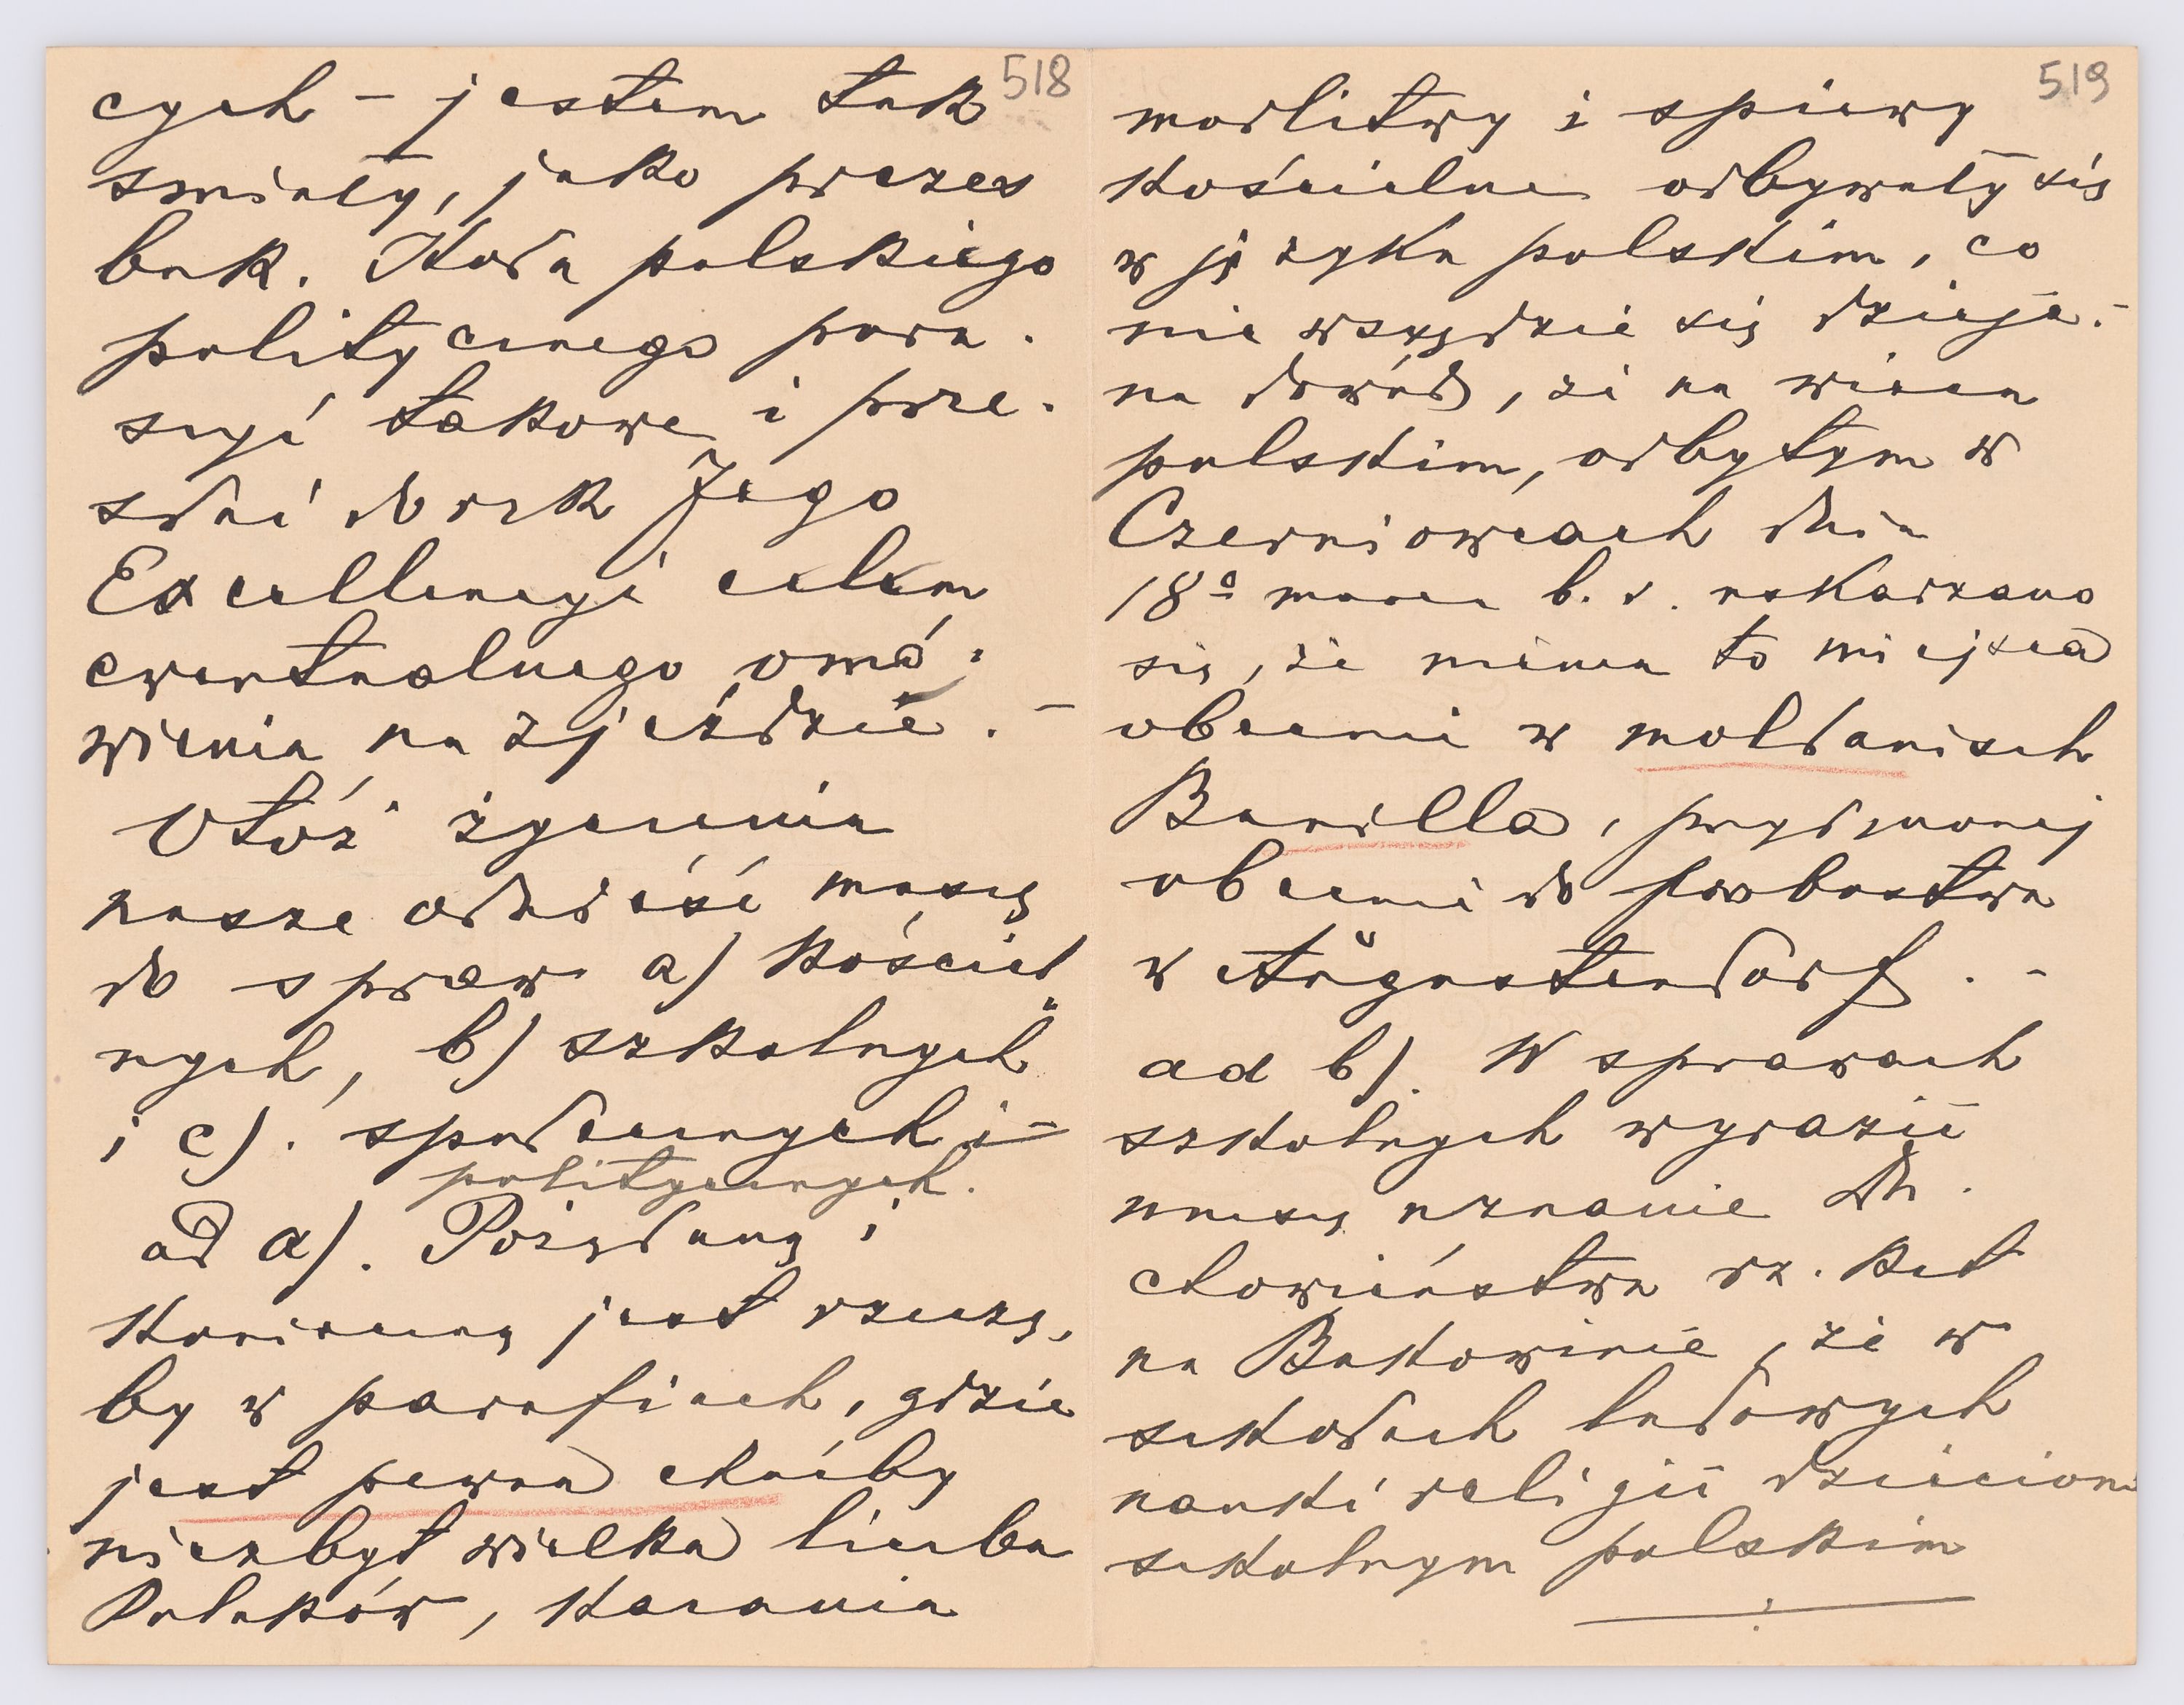 518
cych – jestem tak
smiały, jako prezes
buk. Koła polskiego
politycznego poru-
szyć takowe i prze-
słać do rąk Jego
Excellencyi celem
ewentualnego omó-
wienia na zjeździe. –
Otóż życzenia
nasze odnieść muszę
do spraw a) kościel
nych, b) szkolnych
i c). społecznych i –
politycznych.
ad a). Pożądaną i
konieczną jest rzeczą,
by w parafiach, gdzie
jest pewna choćby
niezbyt wielka liczba
Polaków, kazania
519
modlitwy i spiewy
kościelne odbywały się
w języku polskim, co
nie wszędzie się dzieje. –
na dowód, że na wiecu
polskim, odbytym w
Czerniowcach dnia
18º marca b. r. uskarzano
się, że niema to miejsca
obecnie w moldauisch
Banilla, przydzielonej
obecnie do probostwa
w Augustendorf. –
ad b). W sprawach
szkolnych wyrazić
muszę uznanie Du-
chowieństwu rz. kat
na Bukowinie, że w
szkołach ludowych
nauki religii dzieciom
szkolnym polskim